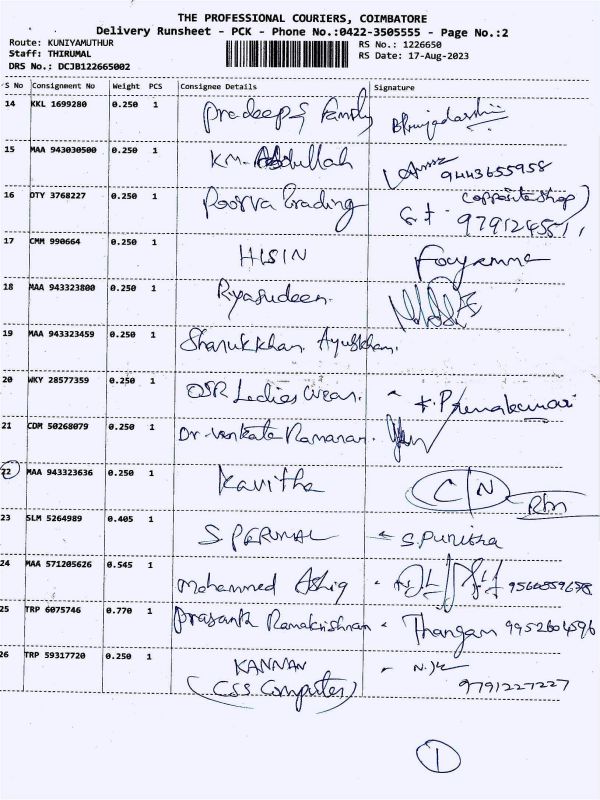 THE PROFESSIONAL COURIERS, COIMBATORE
Delivery Runsheet - PCK - Phone No.:0422-3505555 - Page No.:2
Route: KUNIYAMUTHUR
RS No.: 1226650
Staff: THIRUMAL
RS Date: 17-Aug-2023
DRS No.: DCJB122665002
S No Consignment No Weight PCS Consignee Details Signature
14 KKL 1699280 0.250 1 Pradeep & Family
15 MAA 943030500 0.250 1 K.M. Abdullah 9443655958
16 OTY 3768227 0.250 1 Poorva Trading (opposite shop)
979124551
17 CMM 990664 0.250 1 HISIN
18 MAA 943323800 0.250 1 Riyasudeen
19 MAA 943323459 0.250 1 Sharukkhan Ayubkhan.
20 WKY 28577359 0.250 1 OSR Ladies Wear. K. Premakumari
21 CDM 50268079 0.250 1 Dr. Venkata Ramanan.
22 MAA 943323636 0.250 1 Kavitha C/N
Rtn
23 SLM 5264989 0.405 1 S. PERUMAL S. Punitha
24 MAA 571205626 0.545 1 Mohammed Ashiq
25 TRP 6075746 0.770 1 Prasanth Ramakrishnan Thangam 9952604596
26 TRP 59317720 0.250 1 KANNAN
(CSS Computer) 9791227227
1